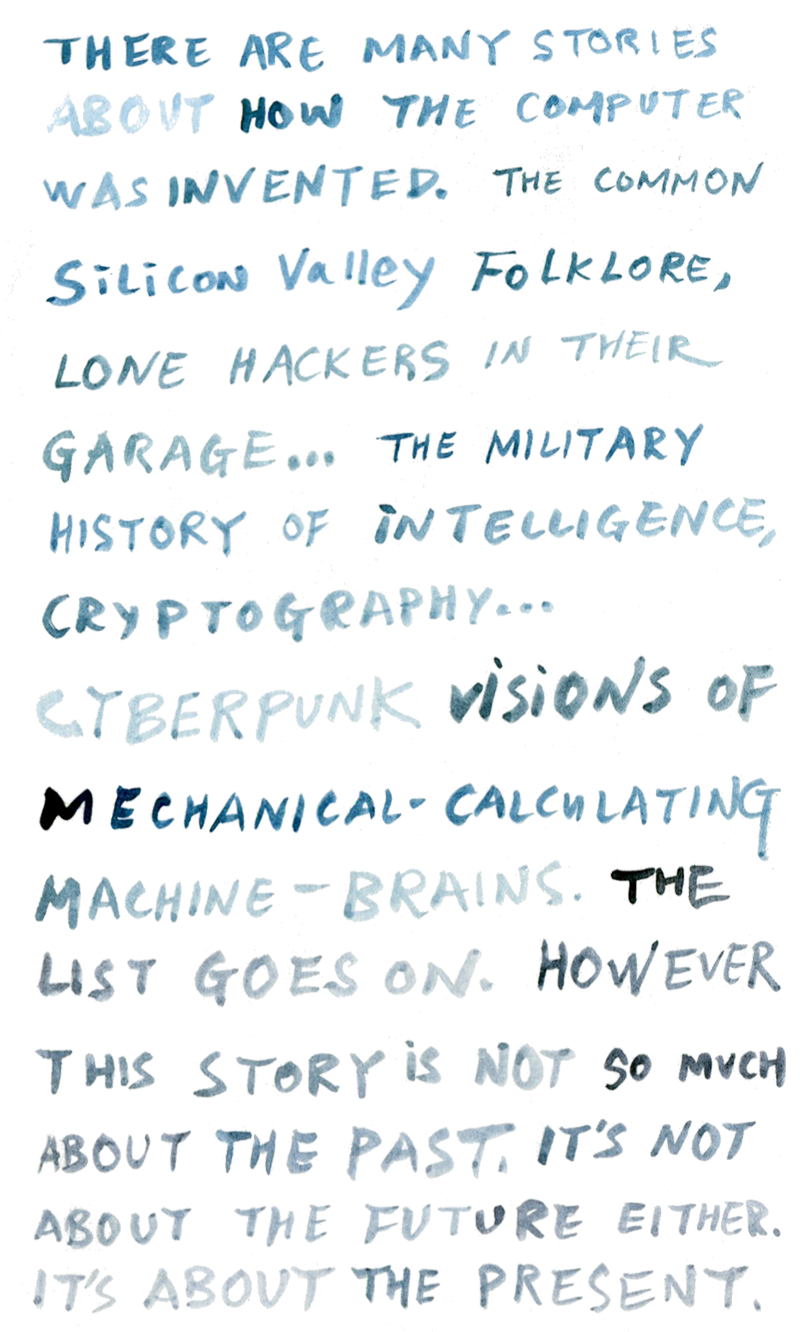 THERE ARE MANY STORIES
ABOUT HOW THE COMPUTER
WAS INVENTED. THE COMMON
SiLiCON Valley FOLKLORE,
LONE HACKERS IN THEIR
GARAGE... THE MILITARY
HISTORY OF iNTELLIGENCE,
CRYPTOGRAPHY...
CYBERPUNK ViSiONS OF
MECHANICAL-CALCULATING
MACHINE-BRAINS. THE
LIST GOES ON. HOWEVER
THIS STORY iS NOT SO MUCH
ABOUT THE PAST. IT'S NOT
ABOUT THE FUTURE EITHER.
IT'S ABOUT THE PRESENT.